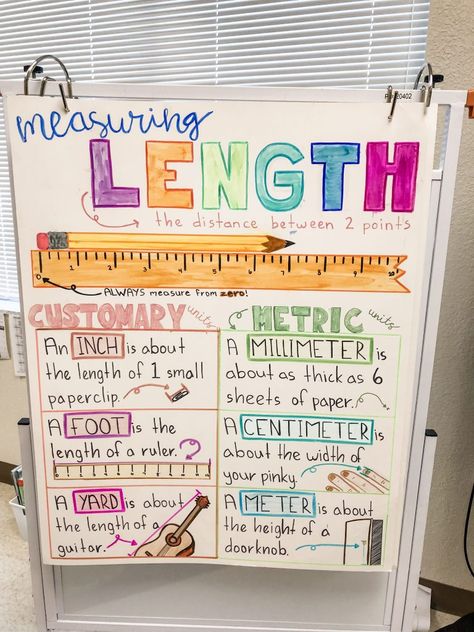 measuring
LENGTH
the distance between 2 points
0 1 2 3 4 5 6 7 8 9 10
ALWAYS measure from zero!
CUSTOMARY units
An INCH is about
the length of 1 small
paperclip.
A FOOT is the
length of a ruler.
A YARD is about
the length of a
guitar.
METRIC units
A MILLIMETER is
about as thick as 6
sheets of paper.
A CENTIMETER is
about the width of
your pinky.
A METER is about
the height of a
doorknob.